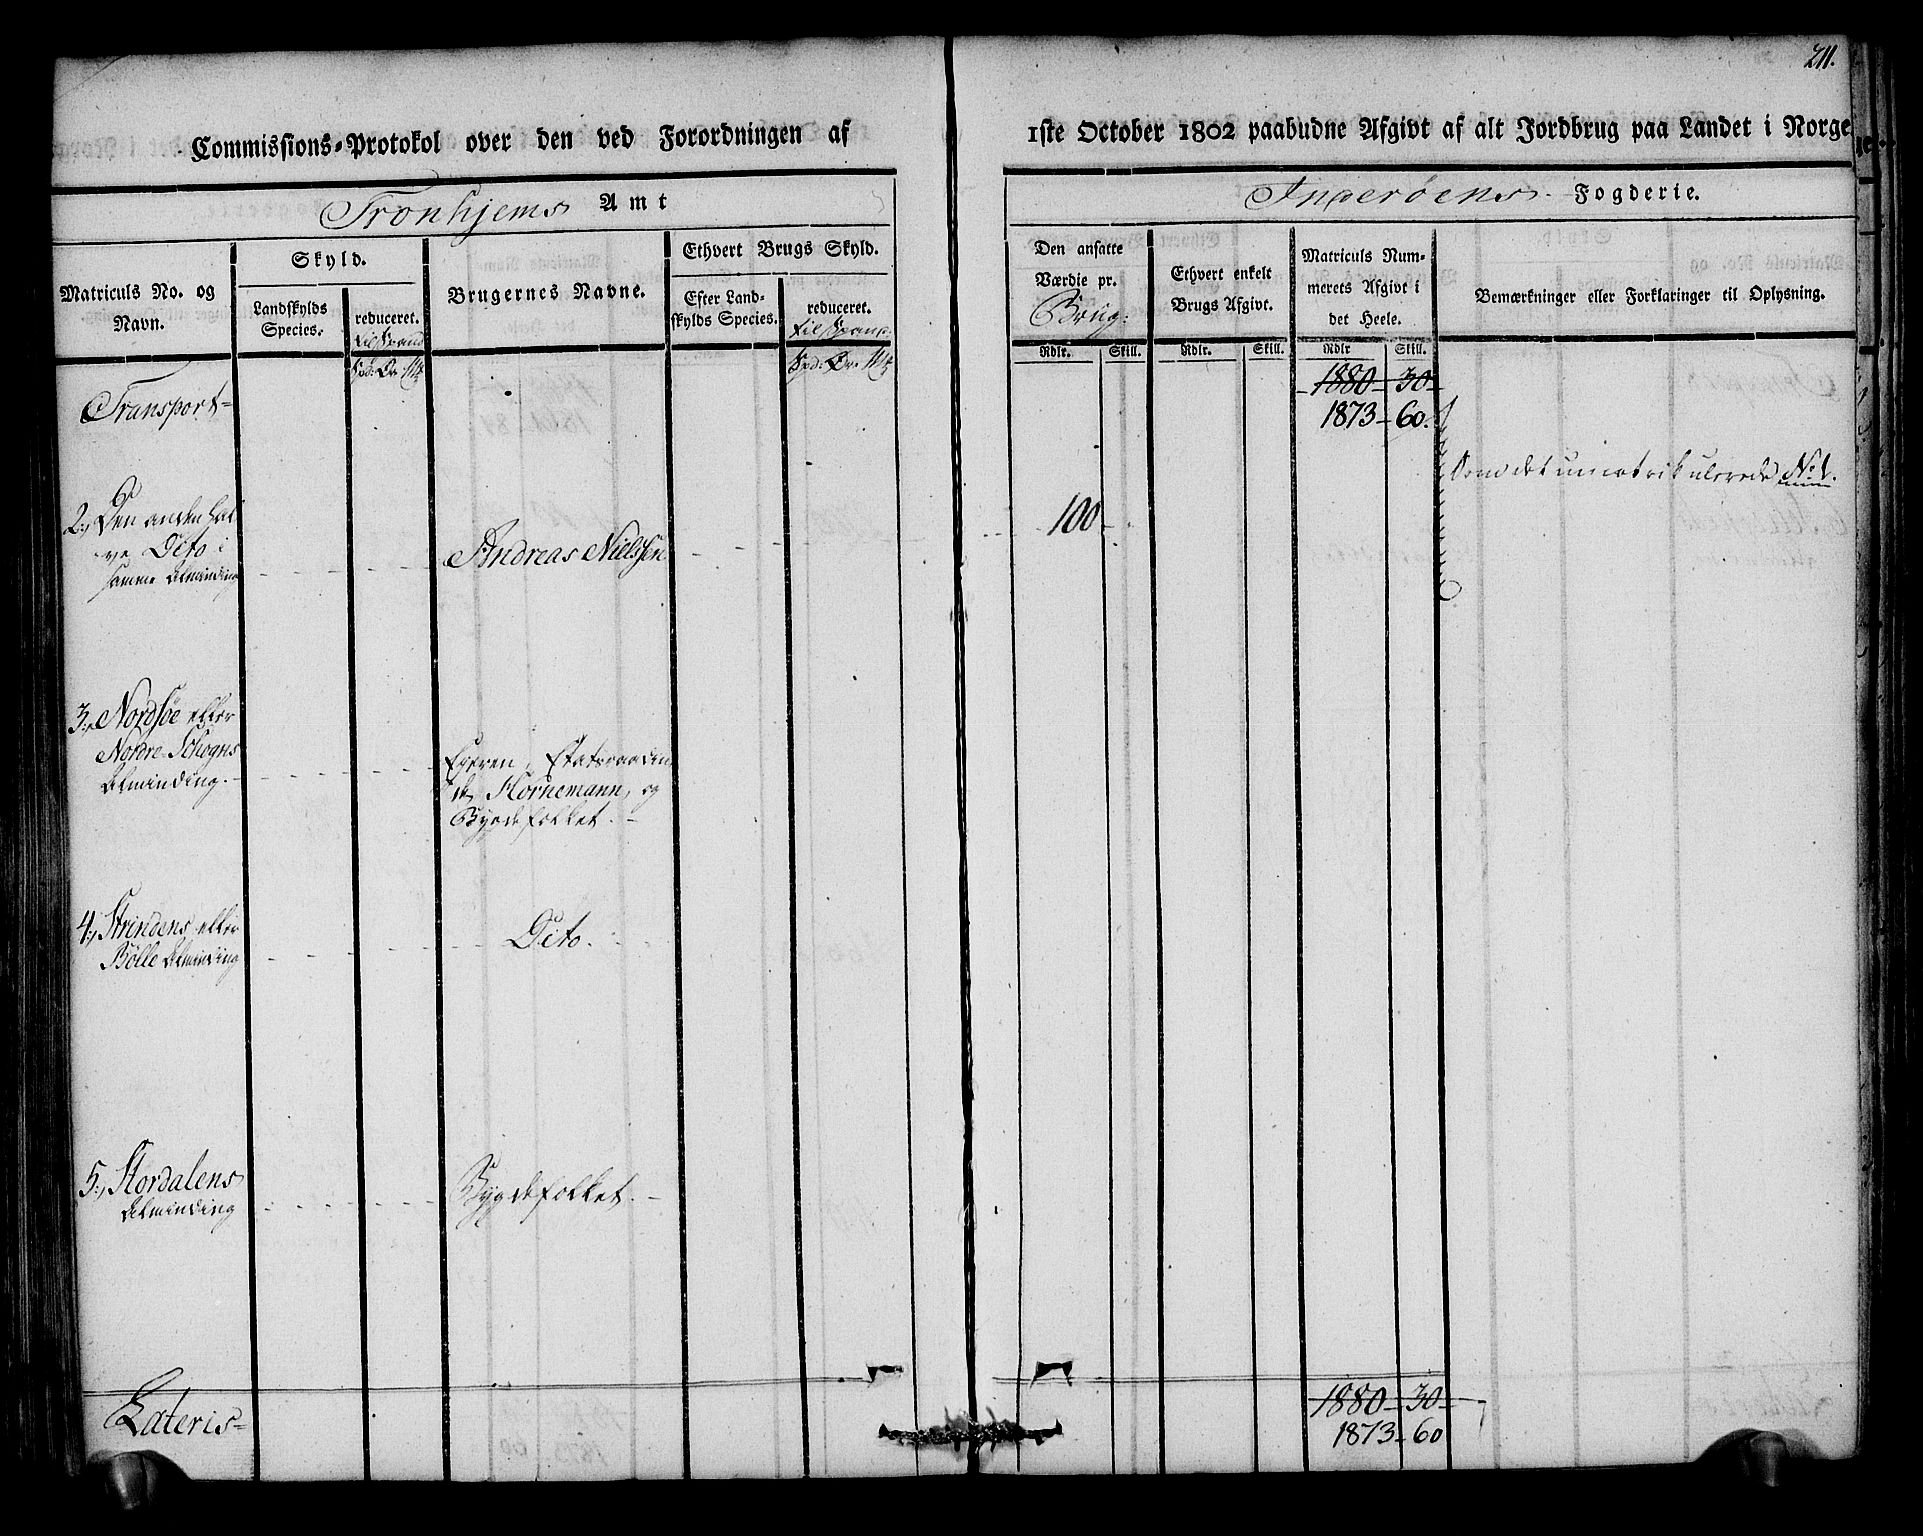 211.
Commissions-Protokol over den ved Forordningen af
1ste October 1802 paabudne Afgivt af alt Jordbrug paa Landet i Norge
Tronhjems Amt
Inderöens Fogderie.
Matriculs No. og
Navn.
Skyld.
Landskylds
Species.
reduceret.
til Spand
Spd: Ør: Mk
Brugernes Navne.
Ethvert Brugs Skyld.
Efter Land-
skylds Species.
reduceret.
til Spand
Spd: Ør: Mk
Den ansatte
Værdie pr.
Brug:
Rdlr. Skill.
Ethvert enkelt
Brugs Afgivt.
Rdlr. Skill.
Matriculs Num-
merets Afgivt i
det Heele.
Rdlr Skill.
Bemærkninger eller Forklaringer til Oplysning.
Transport-
1880 - 30
1873 - 60.
2., Den anden hal
ve Dito i
samme Alminding
Andreas Nielssen
100
Som det umatrikulerede No 1.
3., Nordsøe eller
Nordre-Schogns
Alminding.
Eieren, Etatsraadin
de Hornemann, og
Bygdefolket.
4., Strindens eller
Bölle Alminding
Dito.
5., Stordalens
Alminding
Bygdefolket.
Lateris-
1880 - 30
1873 - 60